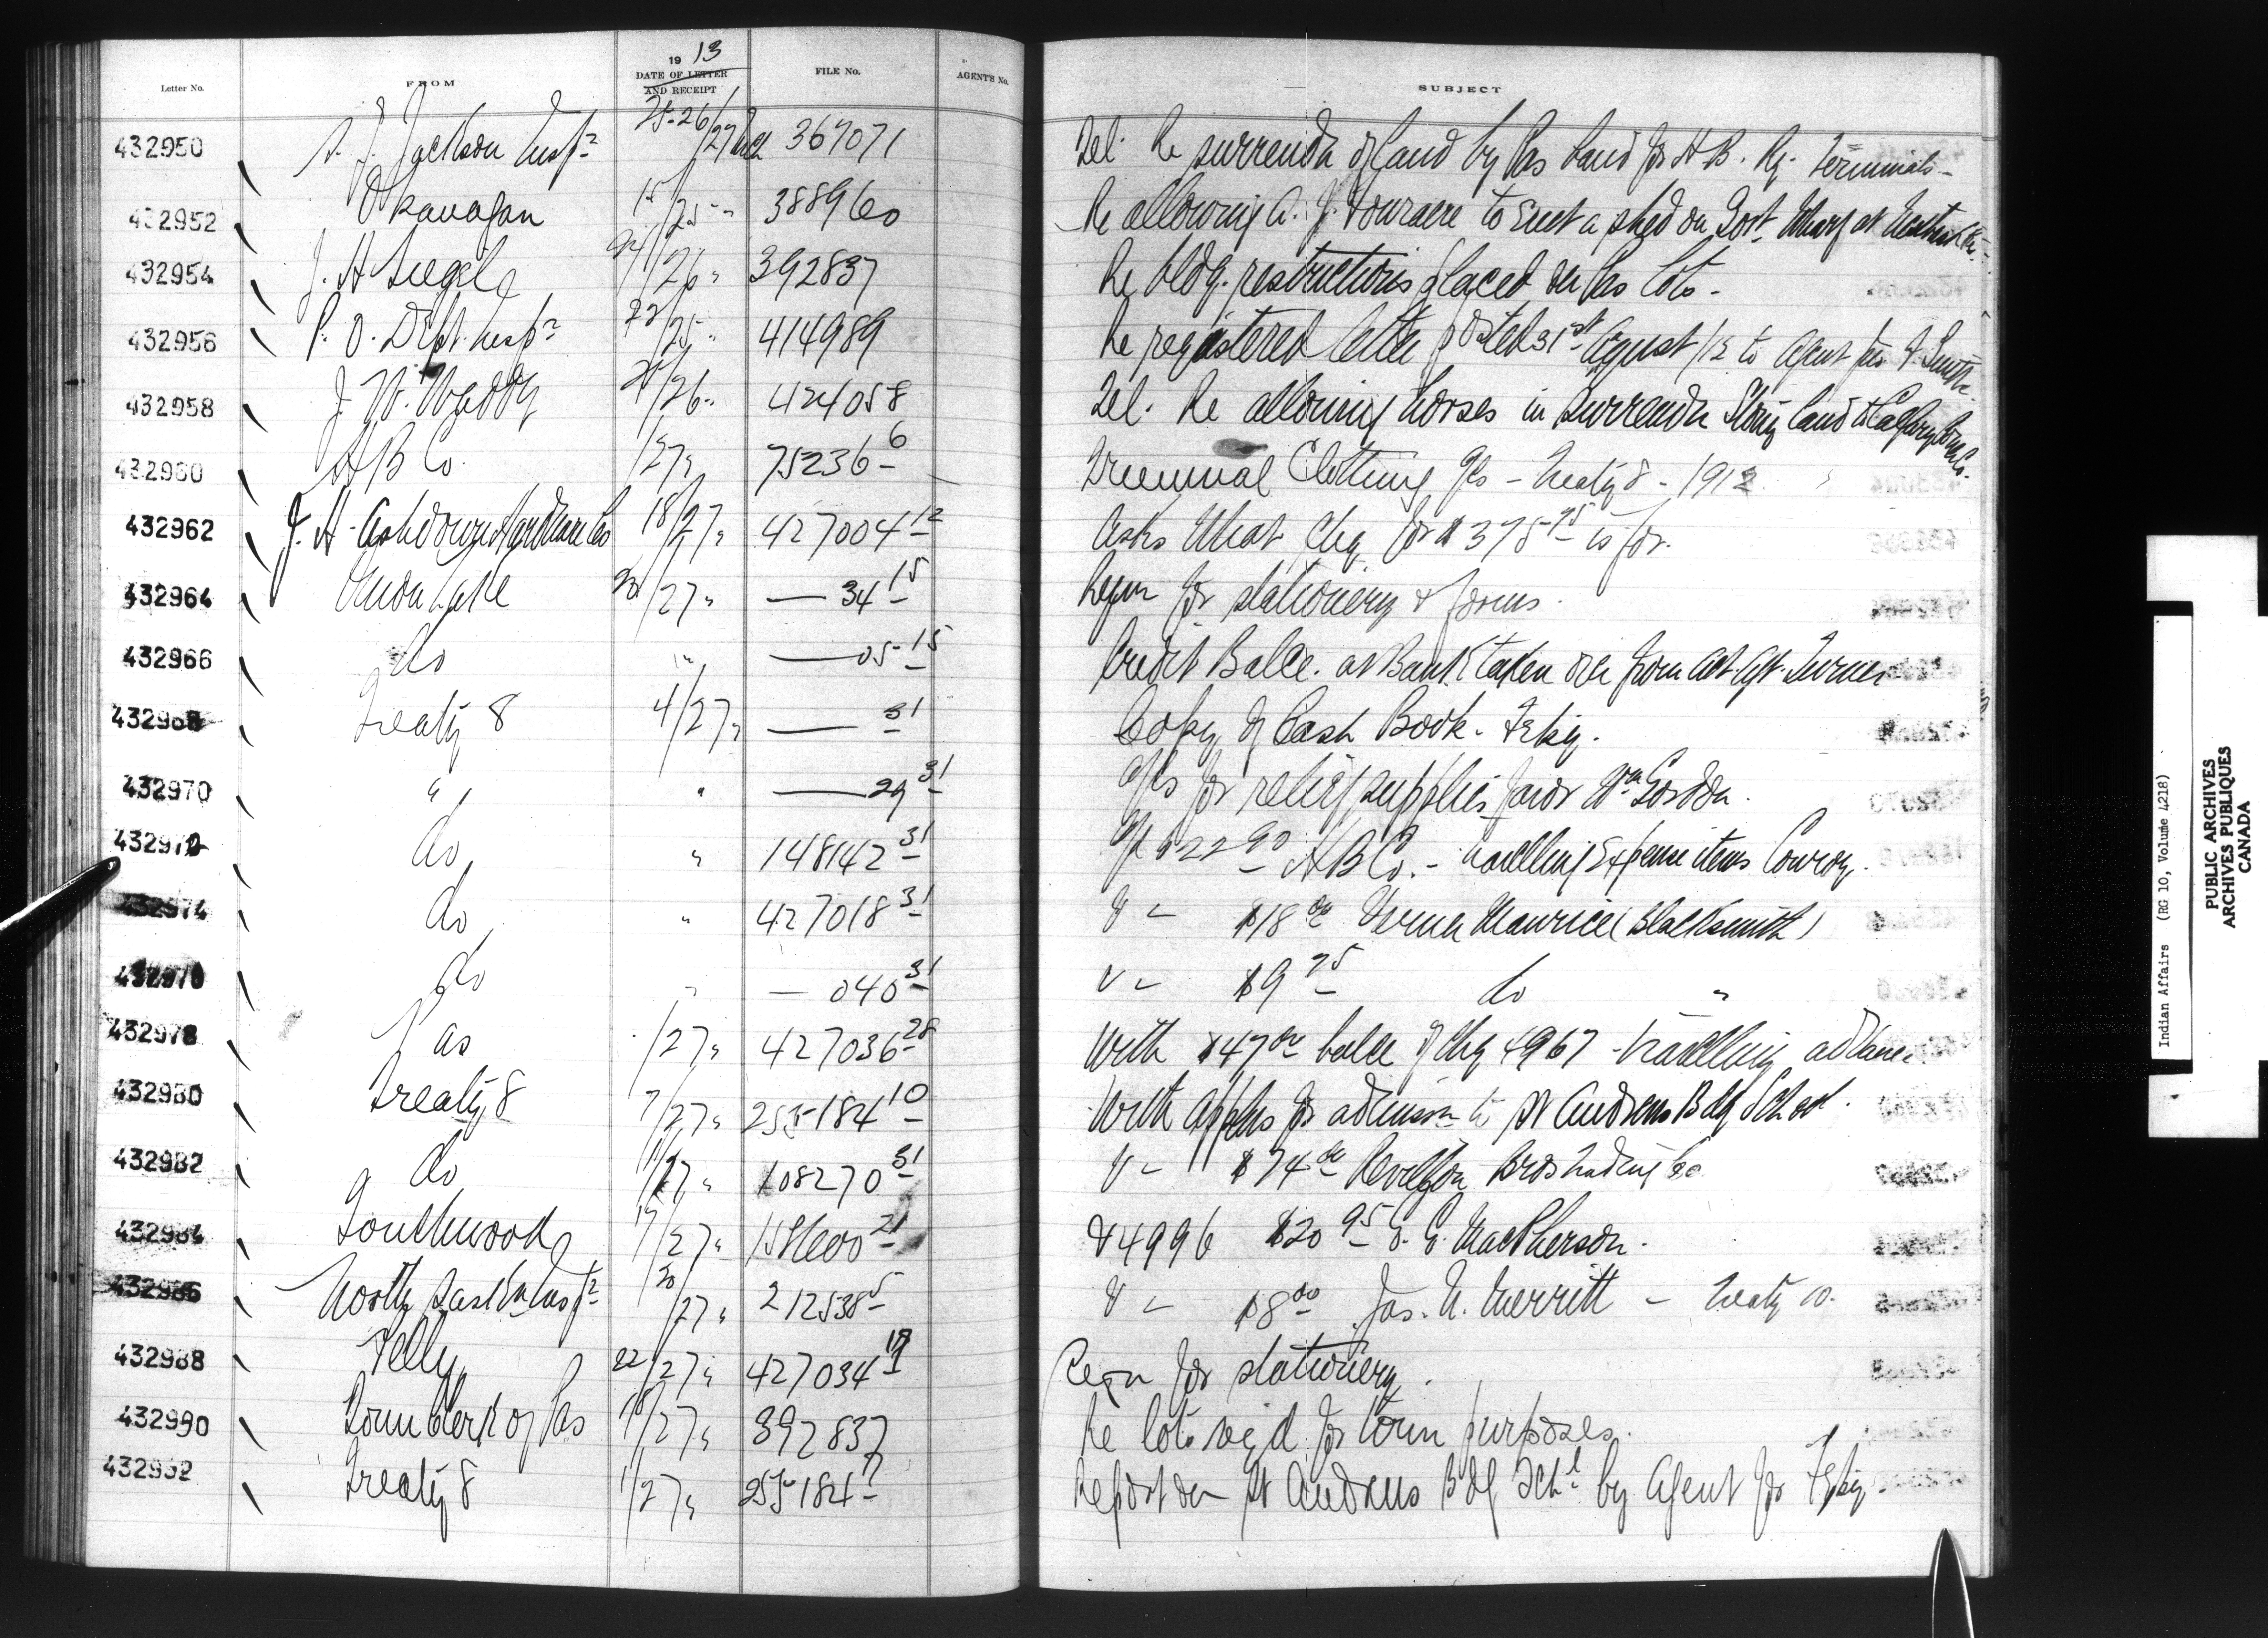 Letter No. FROM 19 13 DATE OF LETTER AND RECEIPT FILE No. AGENT'S No. SUBJECT
432950 S. J. Jackson Insp r 25-26/27 Mch 367071 Tel. Re surrender of land by Pas band for H.B. Ry. terminals -
432952 Okanagan 15/25 " 388960 Re allowing A. J. to erect a shed on Govt. Wharf at
432954 J. H. Siegel 24/26 " 392837 Re bldg. restrictions placed on Pas lots -
432956 P. O. Dept. Insp r 22/25 " 414989 Re registered letter posted 31st August/12 to Agent
432958 J. W. Waddy 25/26 " 424058 Tel. Re allowing horses in surrender Stony land to Calgary
432960 H B Co. /27 " 75236-6 Triennial Clothing a/cs - Treaty 8 - 1912
432962 J. H. Ashdown Hardware Co 18/27 " 427004-12 Asks what chq for $375-75 is for.
432964 Onion Lake 20/27 " — 34-15 Reqn for stationery & forms.
432966 do " " — 05-15 Credit Balce. at Bank taken over from Act. Agt. Turner
432968 Treaty 8 4/27 " — 31 Copy of Cash Book - Feby.
432970 " " — 29-31 a/cs for relief supplies favor Wm Gordon.
432972 do " 148142-31 a/c $22-90 H B Co. - travelling expense items Conroy.
432974 do " 427018-31 " - $18-00 Maurice (Blacksmith)
432976 do " — 040-31 " - $9-75 do "
432978 Pas /27 " 427036-28 With $47-00 balce of chq 4967 - travelling advance
432980 Treaty 8 7/27 " 255184-10 With applns for admission to St Andrews Bdg School.
432982 do 1/27 " 108270-31 " - $74-00 Revillon Bros Trading Co.
432984 Southwood 17/27 " -21 & 4996 $20-95 MacPherson.
432986 North Sask'n Insp r 20/27 " 212538-5 " - $8-00 Jas. N. Merritt - Treaty 10.
432988 Pelly 22/27 " 427034-19 Reqn for stationery.
432990 Town Clerk of Pas 18/27 " 392837 Re lots req'd for town purposes.
432992 Treaty 8 1/27 " 255184-7 Report on St Andrews Bdg Schl by Agent for Feby.
Indian Affairs (RG 10, Volume 4218)
PUBLIC ARCHIVES
ARCHIVES PUBLIQUES
CANADA